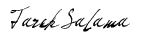 Tarek Salama